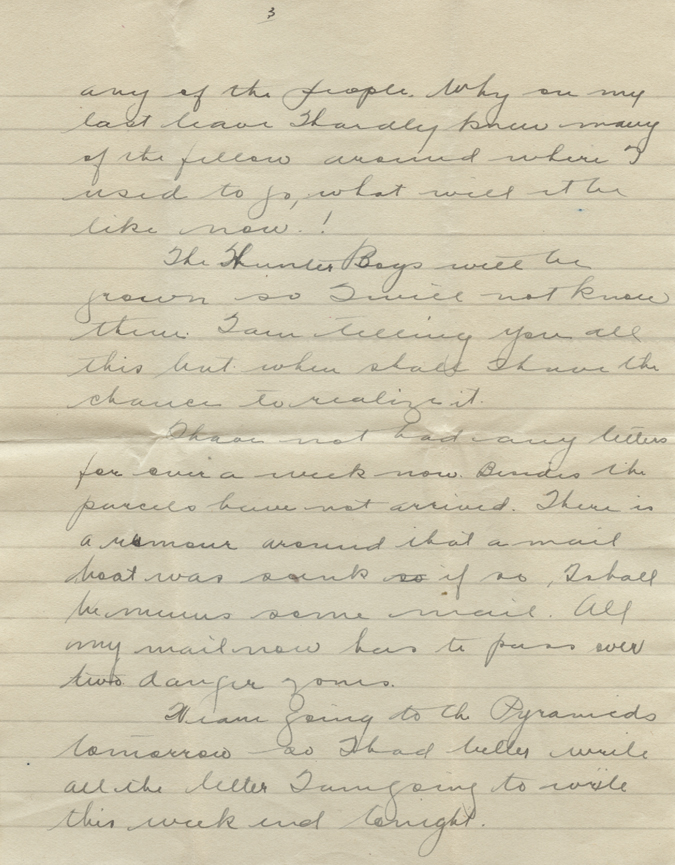 3
any of the people. Why on my
last leave I hardly knew many
of the fellow around where I
used to go, what will it be
like now.!
The Hunter Boys will be
grown so I will not know
them. I am telling you all
this but when shall I have the
chance to realize it.
I have not had any letters
for over a week now. Besides the
parcels have not arrived. There is
a rumour around that a mail
boat was sunk so if so, I shall
be minus some mail. All
my mail now has to pass over
two danger zones.
I am going to the Pyramids
tomorrow so I had better write
all the letter I am going to write
this week end tonight.